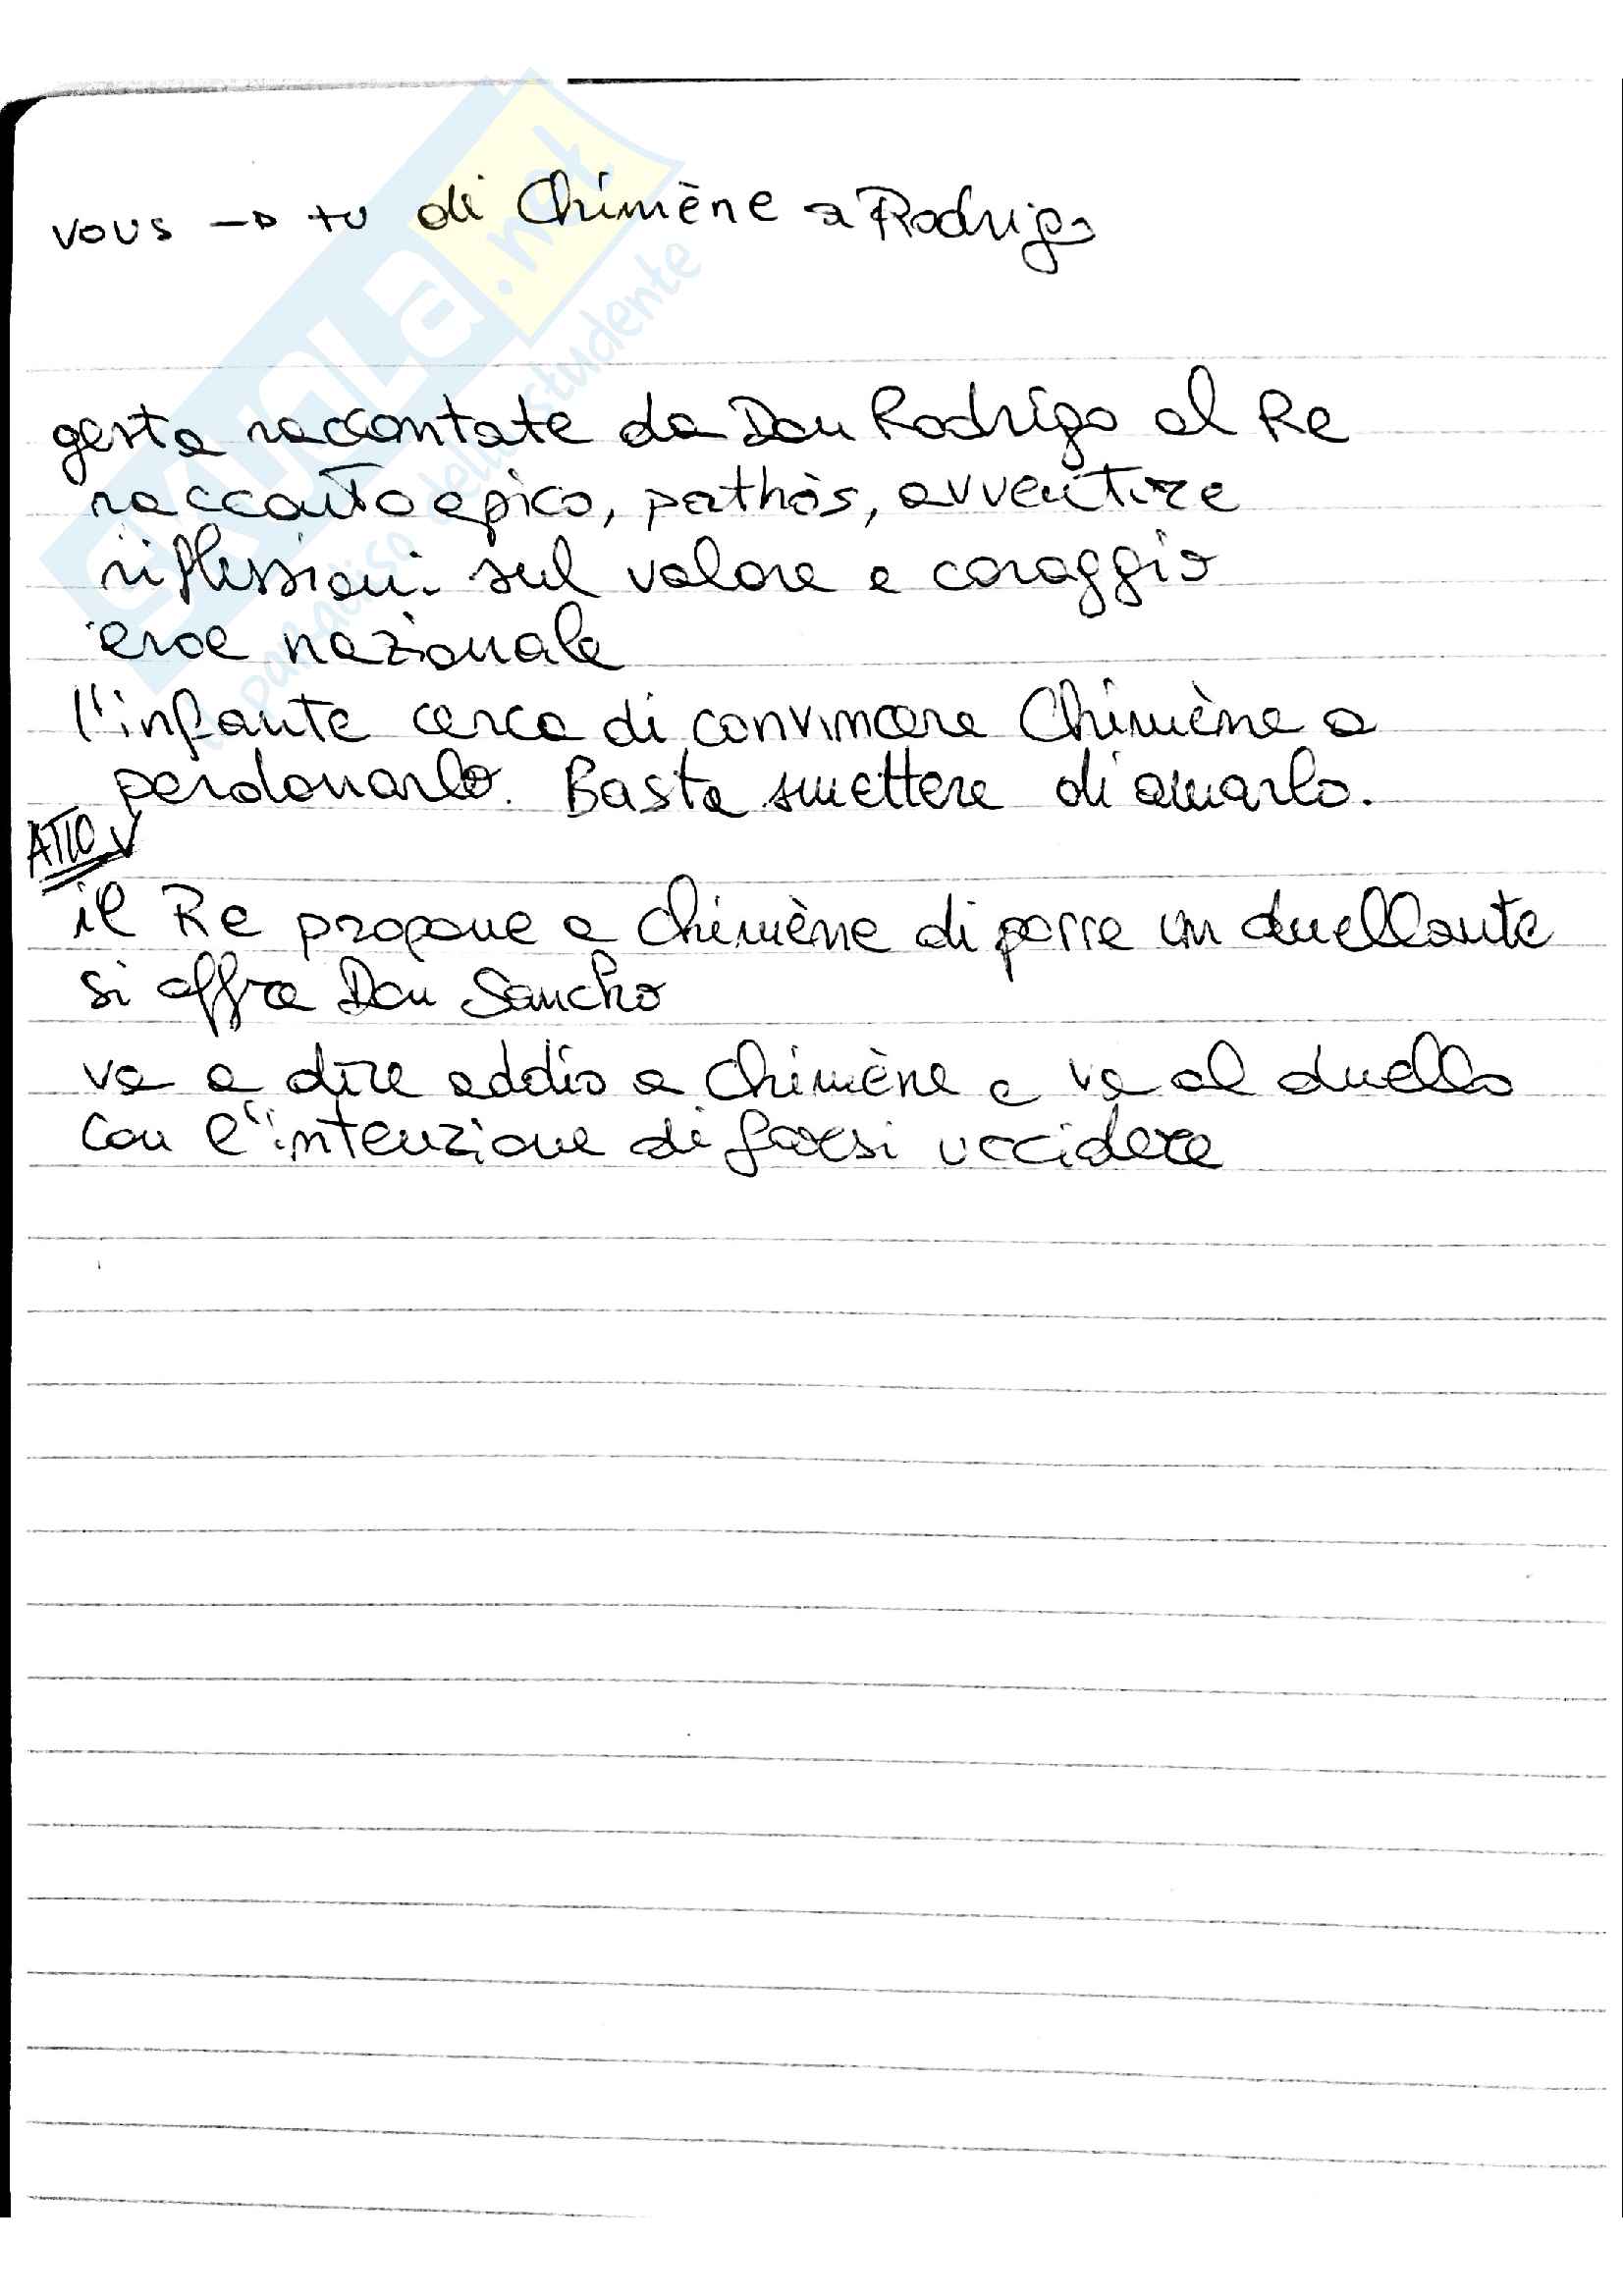 vous → tu di Chimène a Rodrigo
gesta raccontate da Don Rodrigo al Re
racconto epico, pathòs, avventure
riflessioni sul valore e coraggio
eroe nazionale
l'infante cerca di convincere Chimène a
perdonarlo. Basta smettere di amarlo.
ATTO V
il Re propone a Chimène di porre un duellante
si offre Don Sancho
va a dire addio a Chimène e va al duello
con l'intenzione di farsi uccidere
SKUOLA.net
paradiso dello studente